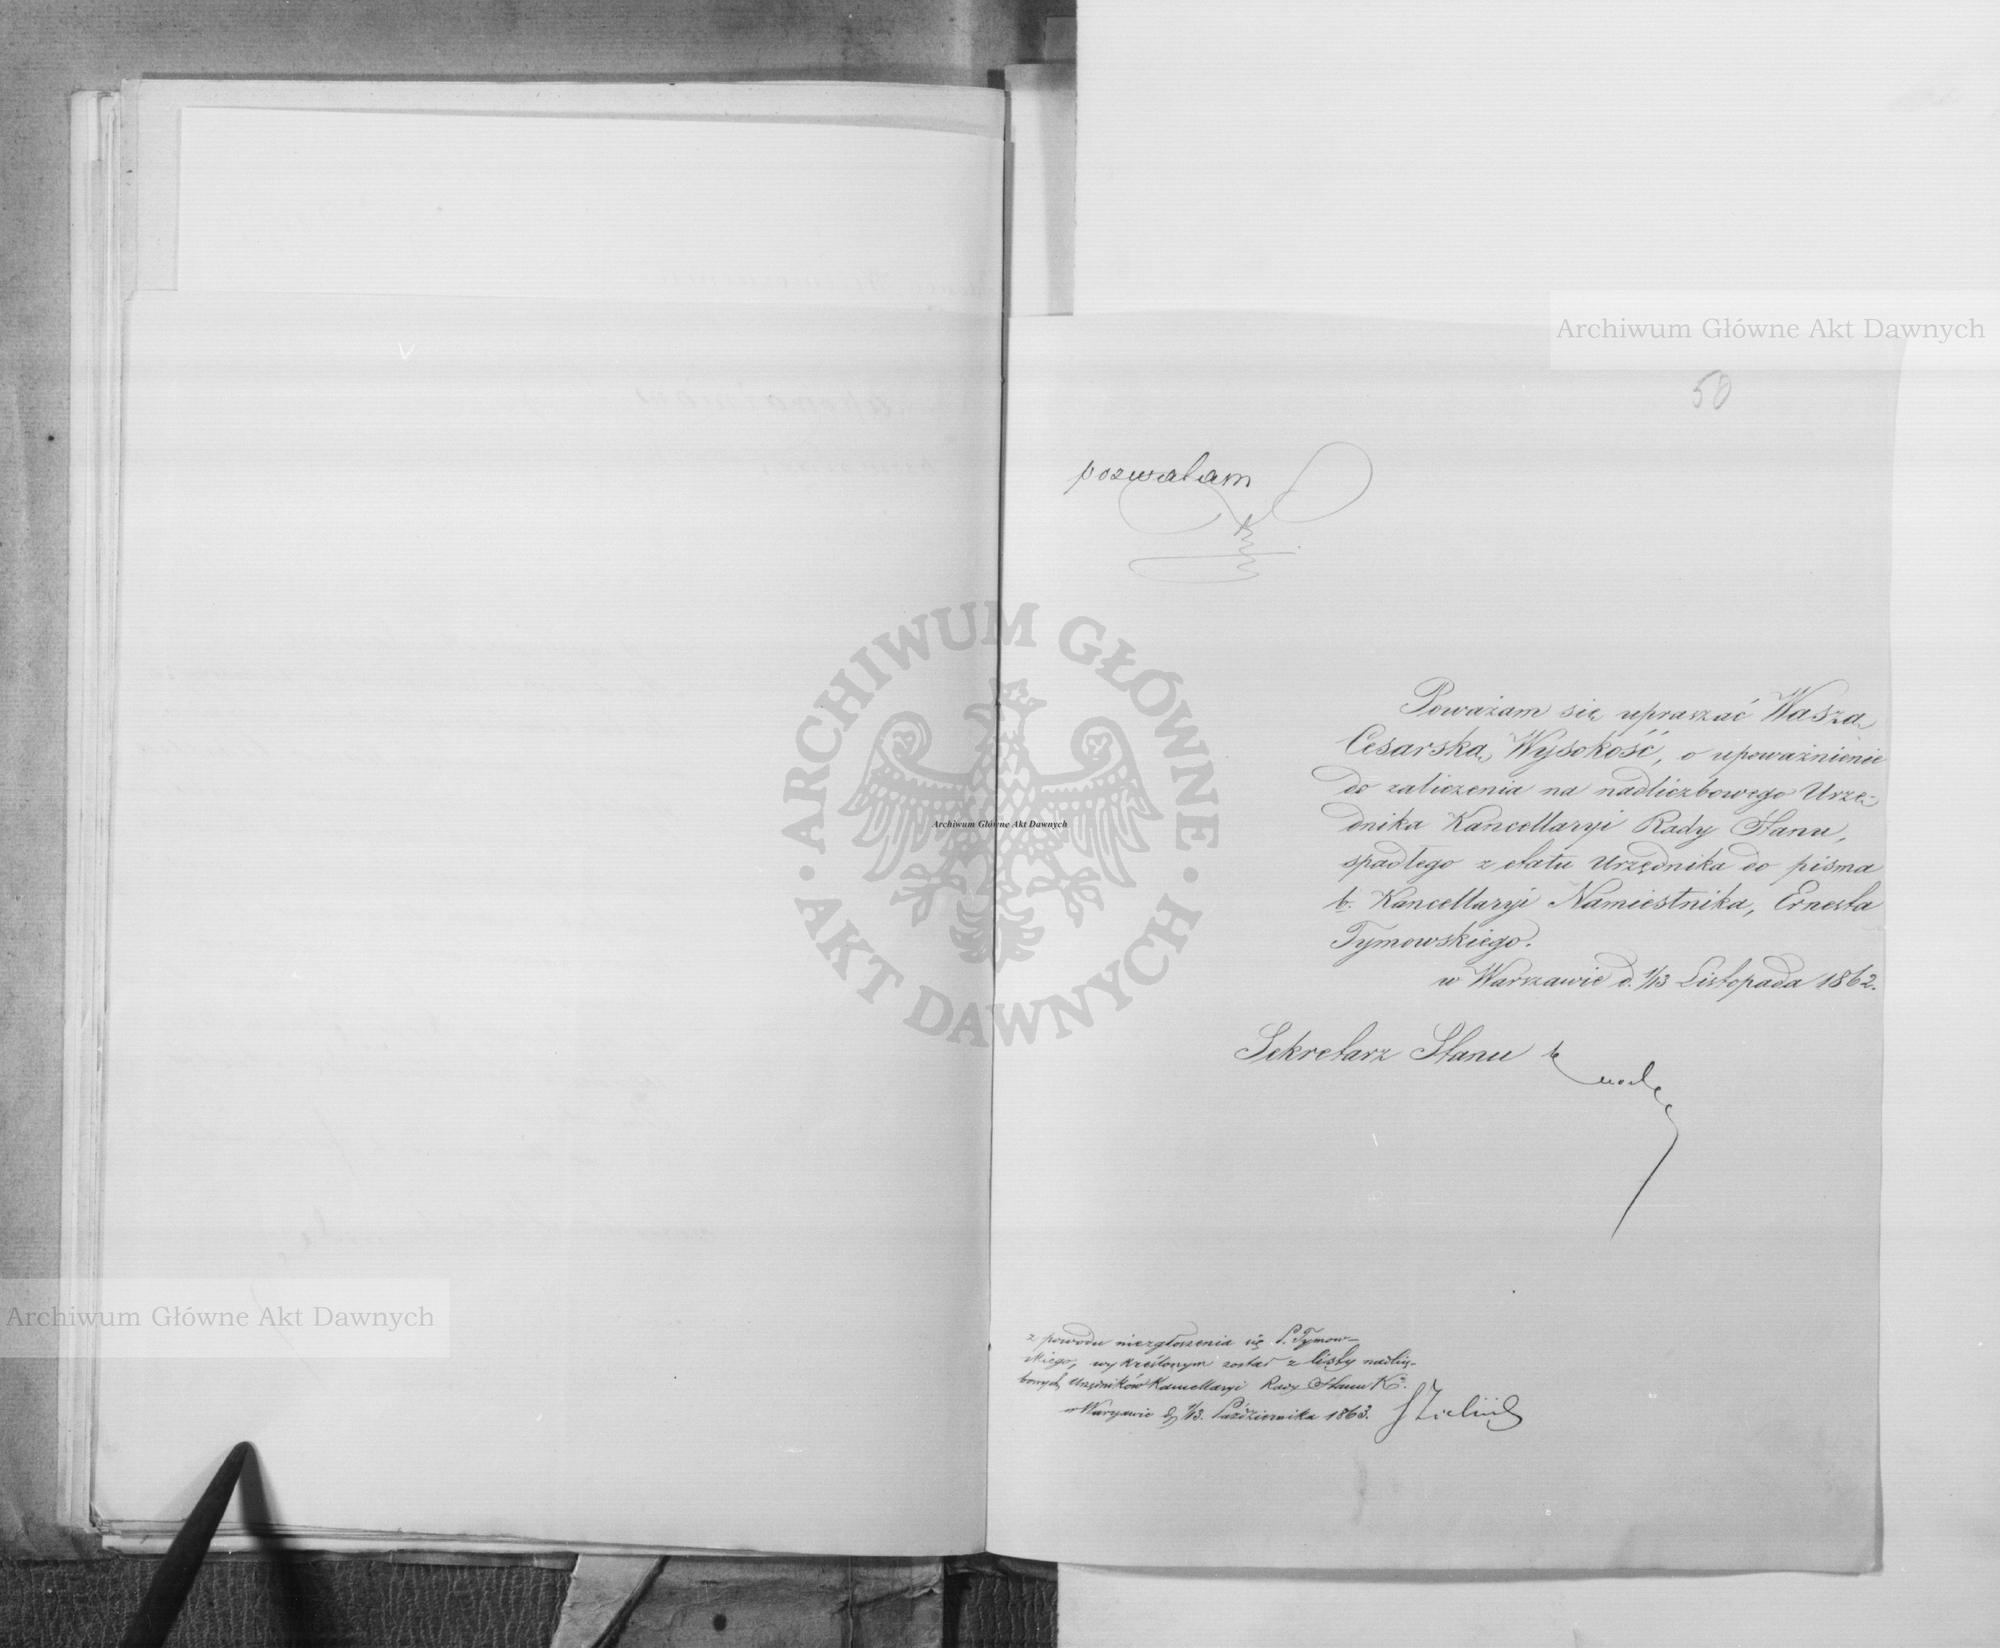 Archiwum Główne Akt Dawnych
50
pozwalam
Poważam się upraszać Waszą
Cesarską Wysokość, o upoważnienie
do zaliczenia na nadliczbowego Urzę-
dnika Kancellaryi Rady Stanu,
spadłego z etatu Urzędnika do pisma
b. Kancellaryi Namiestnika, Ernesta
Tymowskiego.
w Warszawie d. 1/13 Listopada 1862.
Sekretarz Stanu
ARCHIWUM GŁÓWNE
AKT DAWNYCH
Archiwum Główne Akt Dawnych
Archiwum Główne Akt Dawnych
z powodu niezgłoszenia się P. Tymow-
skiego, wykreślonym został z listy nadlicz-
bowych Urzędników Kancellaryi Rady Stanu
w Warszawie d. 1/13. Października 1863.